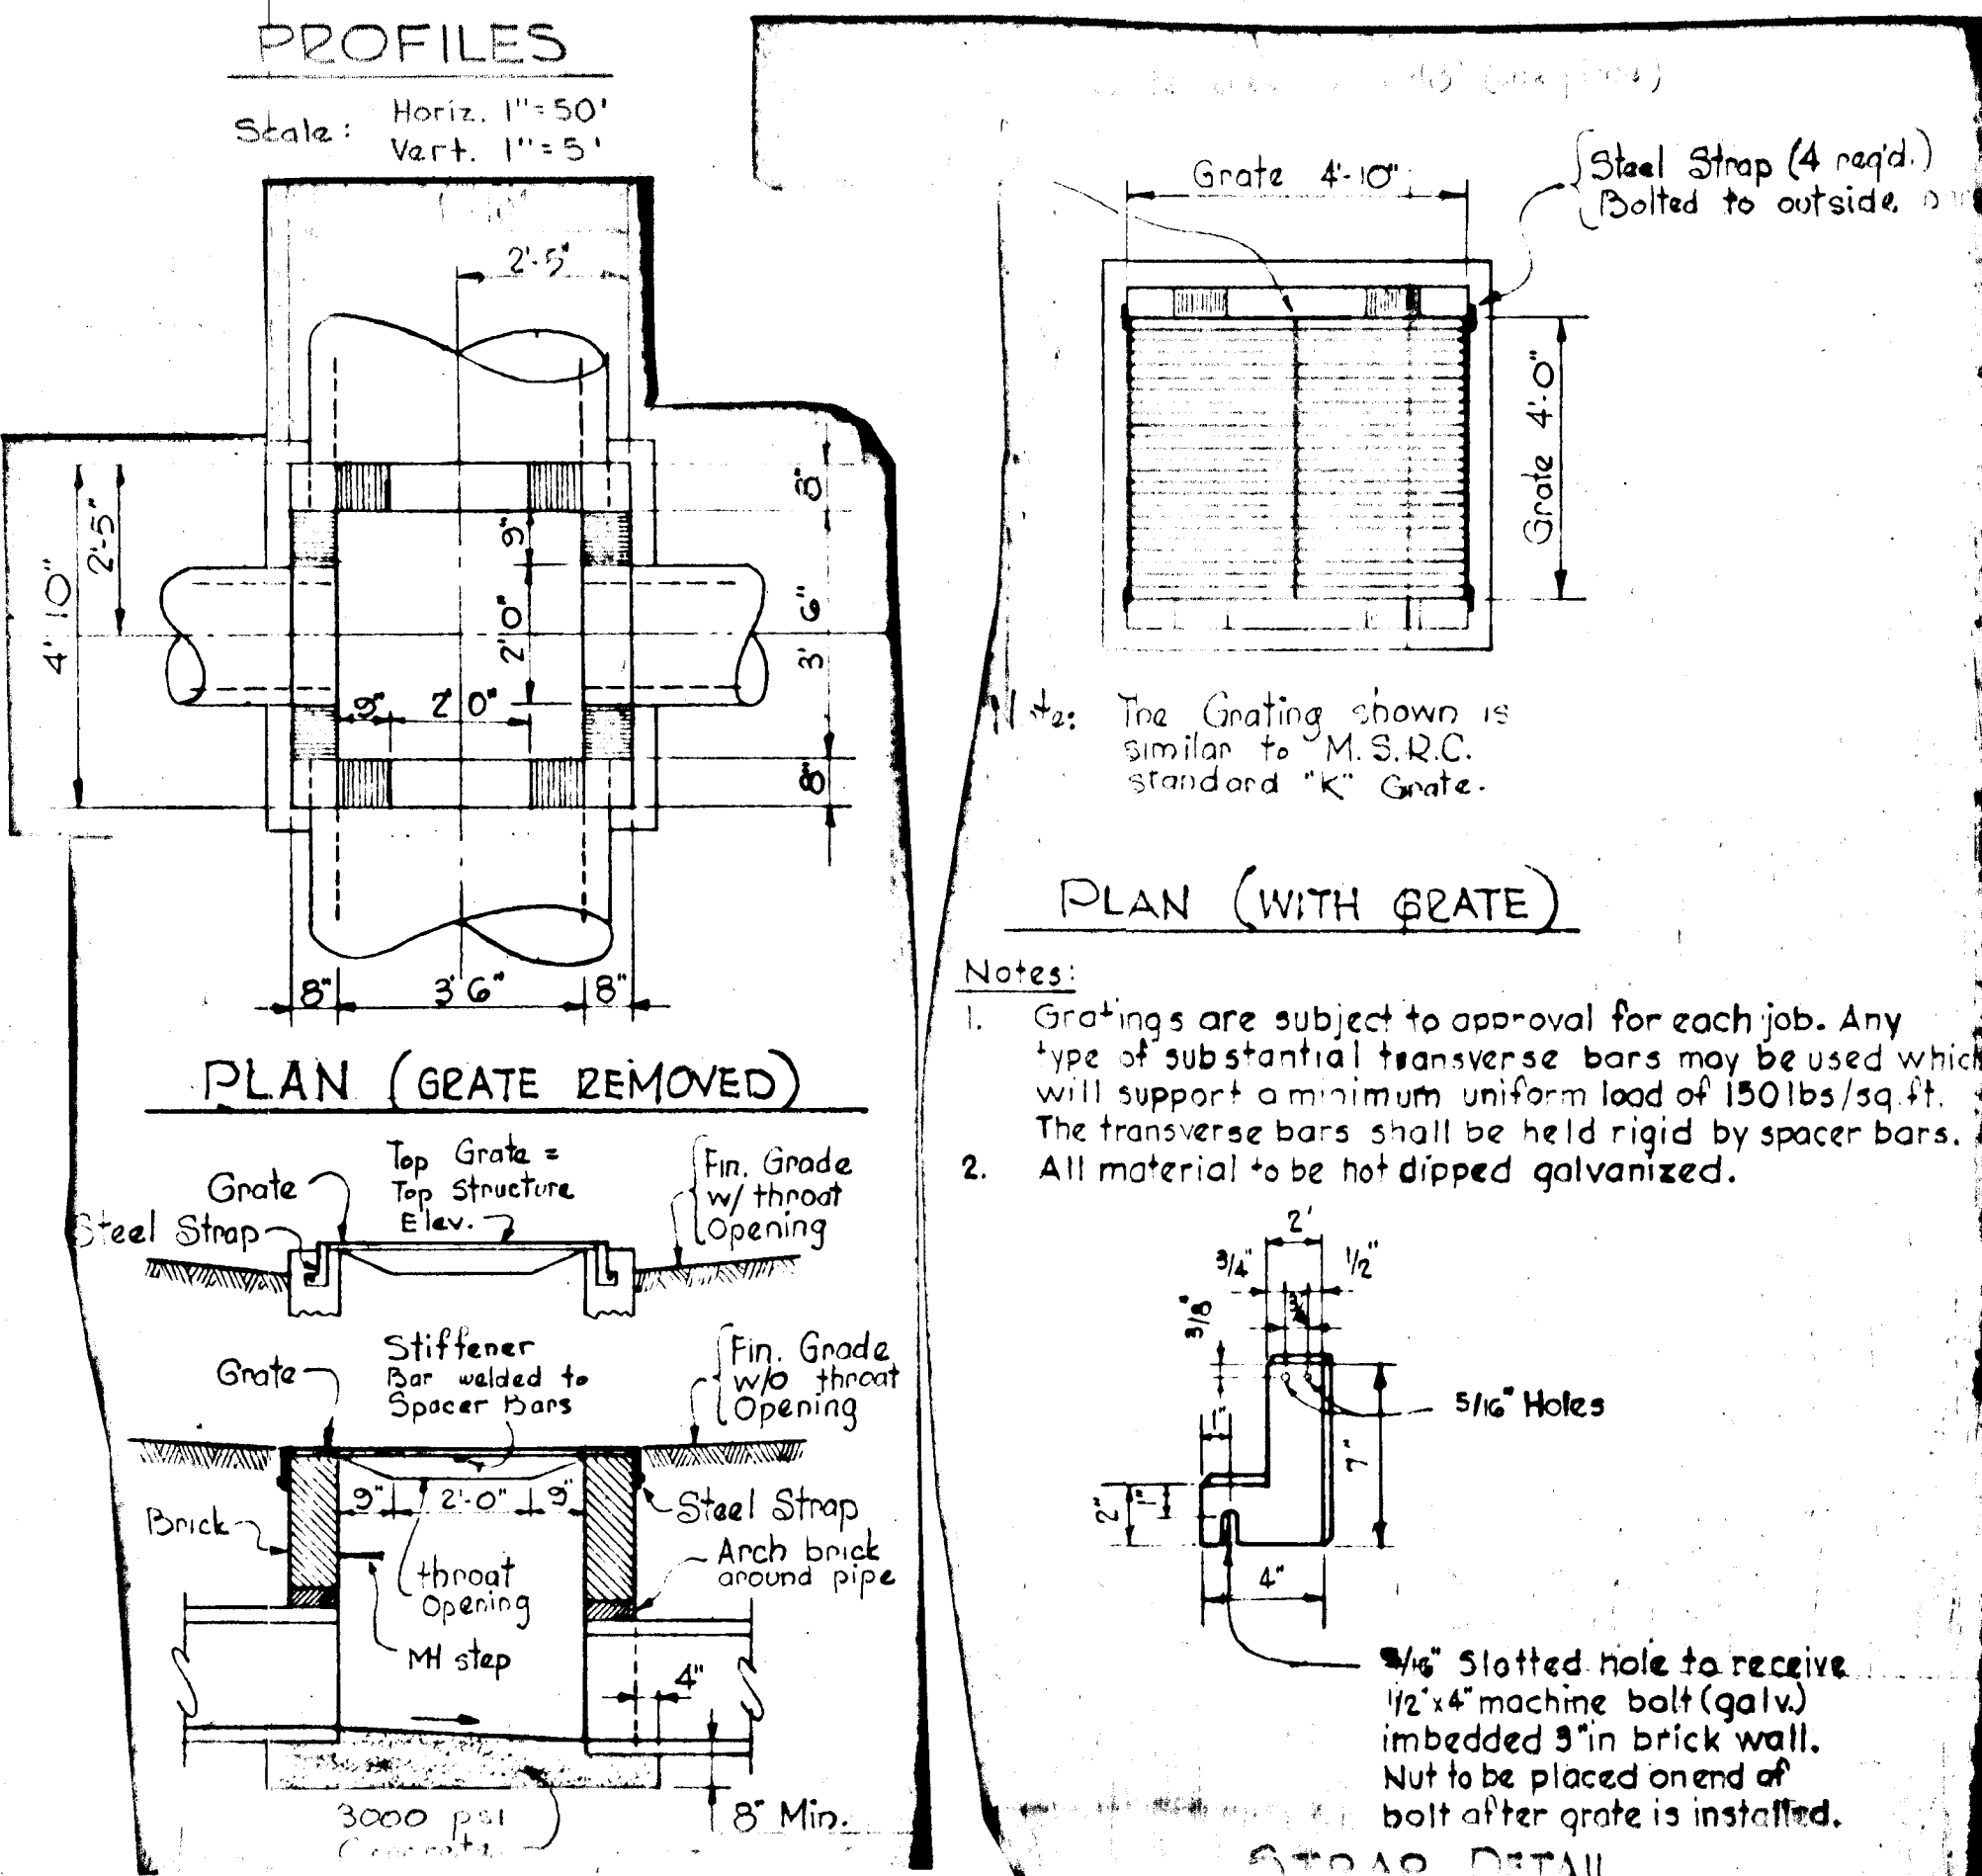 PROFILES
Scale: Horiz. 1"=50'
Vert. 1"=5'
2'-5"
4' 10"
2'-5"
8"
9"
2' 0"
3' 6"
9"
2' 0"
8"
8"
3' 6"
8"
PLAN (GRATE REMOVED)
Grate
Top Grate =
Top Structure
Elev.
Fin. Grade
w/ throat
Opening
Steel Strap
Grate
Stiffener
Bar welded to
Spacer Bars
Fin. Grade
w/o throat
Opening
9"
2'-0"
9"
Brick
Steel Strap
throat
Opening
Arch brick
around pipe
MH step
4"
3000 psi
Concrete
8" Min.
Grate 4'-10"
Steel Strap (4 req'd.)
Bolted to outside
Grate 4'-0"
Note: The Grating shown is
similar to M.S.R.C.
standard "K" Grate.
PLAN (WITH GRATE)
Notes:
1. Gratings are subject to approval for each job. Any
type of substantial transverse bars may be used which
will support a minimum uniform load of 150 lbs/sq.ft.
The transverse bars shall be held rigid by spacer bars.
2. All material to be hot dipped galvanized.
2'
3/4"
1/2"
3/8"
5/16" Holes
1"
7"
2"
1"
4"
Slotted hole to receive
1/2"x4" machine bolt (galv.)
imbedded 3" in brick wall.
Nut to be placed on end of
bolt after grate is installed.
STRAP DETAIL